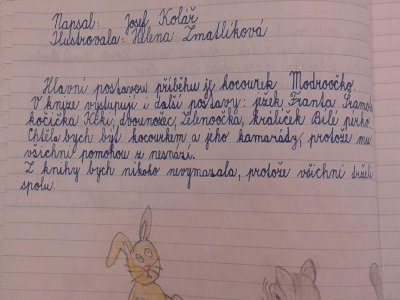 Napsal: Josef Kolář
Ilustrovala: Helena Zmatlíková
Hlavní postavou příběhu je kocourek Modroočko.
V knize vystupují i další postavy: ježek Franta
kočička Kiki, dvounožec, Zelenoočka, králíček Bílé pírko
Chtěla bych být kocourkem a jeho kamarády, protože mu
všichni pomohou z nesnází.
Z knihy bych nikoho nevymazala, protože všichni drželi
spolu.